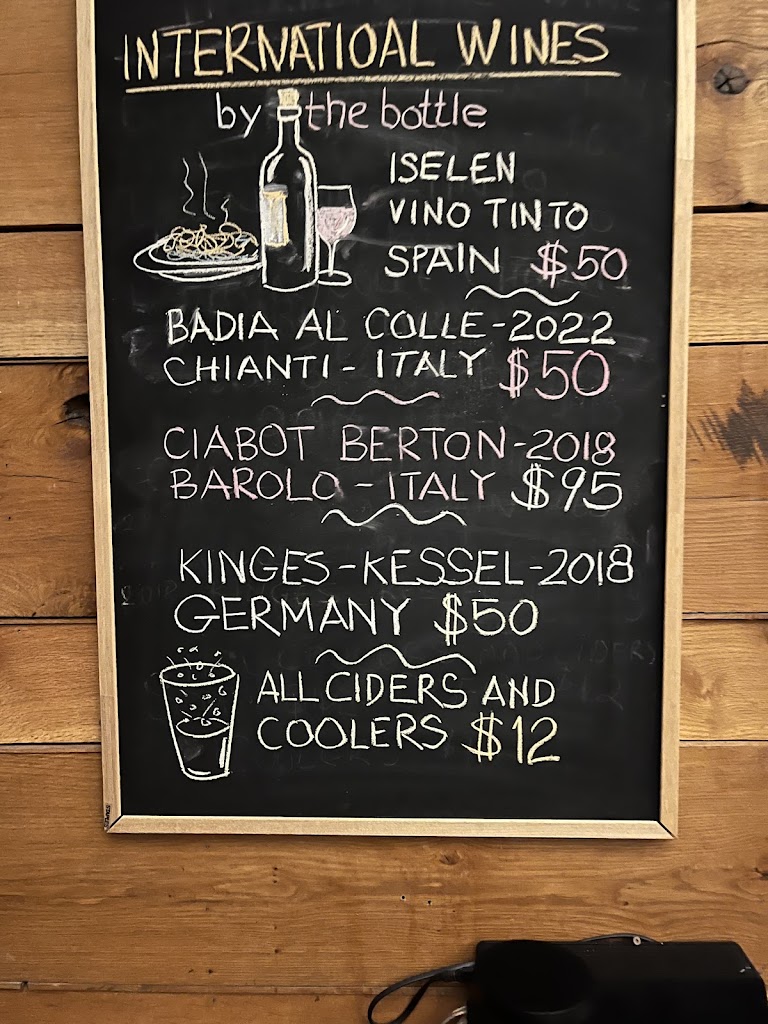 INTERNATIOAL WINES
by the bottle
ISELEN
VINO TINTO
SPAIN $50
BADIA AL COLLE-2022
CHIANTI - ITALY $50
CIABOT BERTON-2018
BAROLO - ITALY $95
KINGES-KESSEL-2018
GERMANY $50
ALL CIDERS AND
COOLERS $12